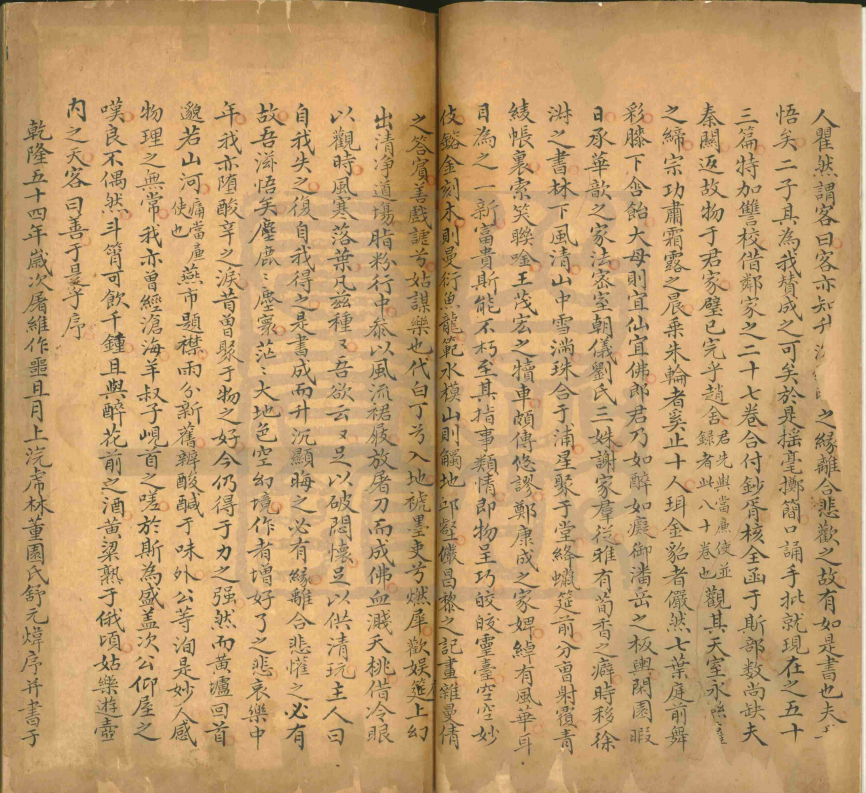 人瞿然謂客曰客亦知升之緣離合悲歡之故有如是書也夫
悟矣二子其為我贊成之可矣於是搖毫擲簡口誦手批就現在之五十
三篇特加讐校借鄰家之二十七卷合付鈔胥核全函于斯部数尚缺夫
秦關返故物于君家璧已完乎趙舍君先與當廉使並録者此八十卷也觀其天室永
之締宗功肅霜露之晨乘朱輪者奚止十人珥金貂者儼然七葉庭前舞
彩膝下含飴大母則宜仙宜佛郎君乃如醉如癡御潘岳之板輿閑園暇
日承華歆之家法密室朝儀劉氏三姝謝家羣從雅有荀香之癖時移徐
淛之書林下風清山中雪满珠合于浦星聚于堂絳蠟筵前分曹射覆青
綾帳裏索笑聯唫王茂宏之犢車頗傳悠謬鄭康成之家婢綽有風華耳
目為之一新富貴斯能不朽至其指事類情即物呈巧皎皎靈臺空空妙
伎鎔金刻木則曼衍魚龍範水模山則觸地邱壑儼昌黎之記畫雜曼倩
之答賓善戲謔兮姑謀樂也代白丁兮入地褫墨吏兮燃犀歡娛筵上幻
出清净道塲脂粉行中参以風流裙屐放屠刀而成佛血濺夭桃借冷眼
以觀時風寒落葉凡兹種又吾欲云又足以破悶懷足以供清玩主人曰
自我失之復自我得之是書成而升沉顯晦之必有緣離合悲懽之必有
故吾滋悟矣塵鹿塵寰茫大地色空幻境作者增好了之悲哀樂中
年我亦墮酸辛之淚昔曾聚于物之好今仍得于力之强然而黃壚回首
邈若山河痛當廉使也燕市題襟雨分新舊辨酸醎于味外公等洵是妙人感
物理之無常我亦曾經滄海羊叔子峴首之嗟於斯為盛盖次公仰屋之
嘆良不偶然斗筲可飲千鍾且與醉花前之酒黃粱熟于俄頃姑樂遊壺
內之天客曰善于是乎序
乾隆五十四年嵗次屠維作噩且月上浣虎林董園氏舒元煒序并書于